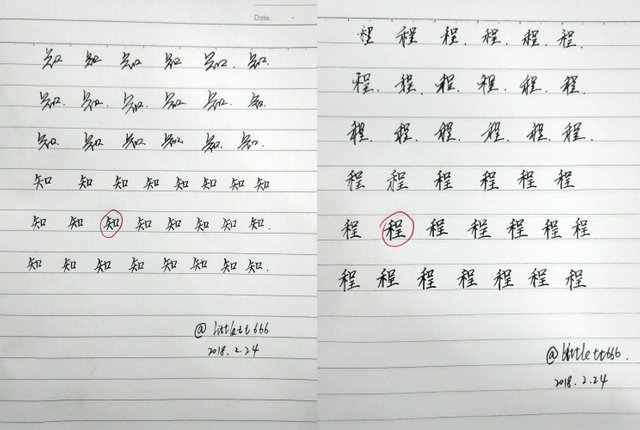 Date.
知 知 知 知 知. 知.
知. 知. 知. 知. 知. 知
知. 知 知 知 知 知.
知 知 知 知 知 知 知 知
知 知 知 知 知 知 知 知.
知 知 知 知 知 知 知 知.
@littlett666
2018.2.24
程 程 程. 程. 程. 程.
程. 程. 程. 程. 程. 程.
程. 程. 程. 程. 程. 程.
程 程 程 程 程 程
程 程 程 程 程 程 程
程 程 程 程 程 程 程
@littlett666.
2018.2.24